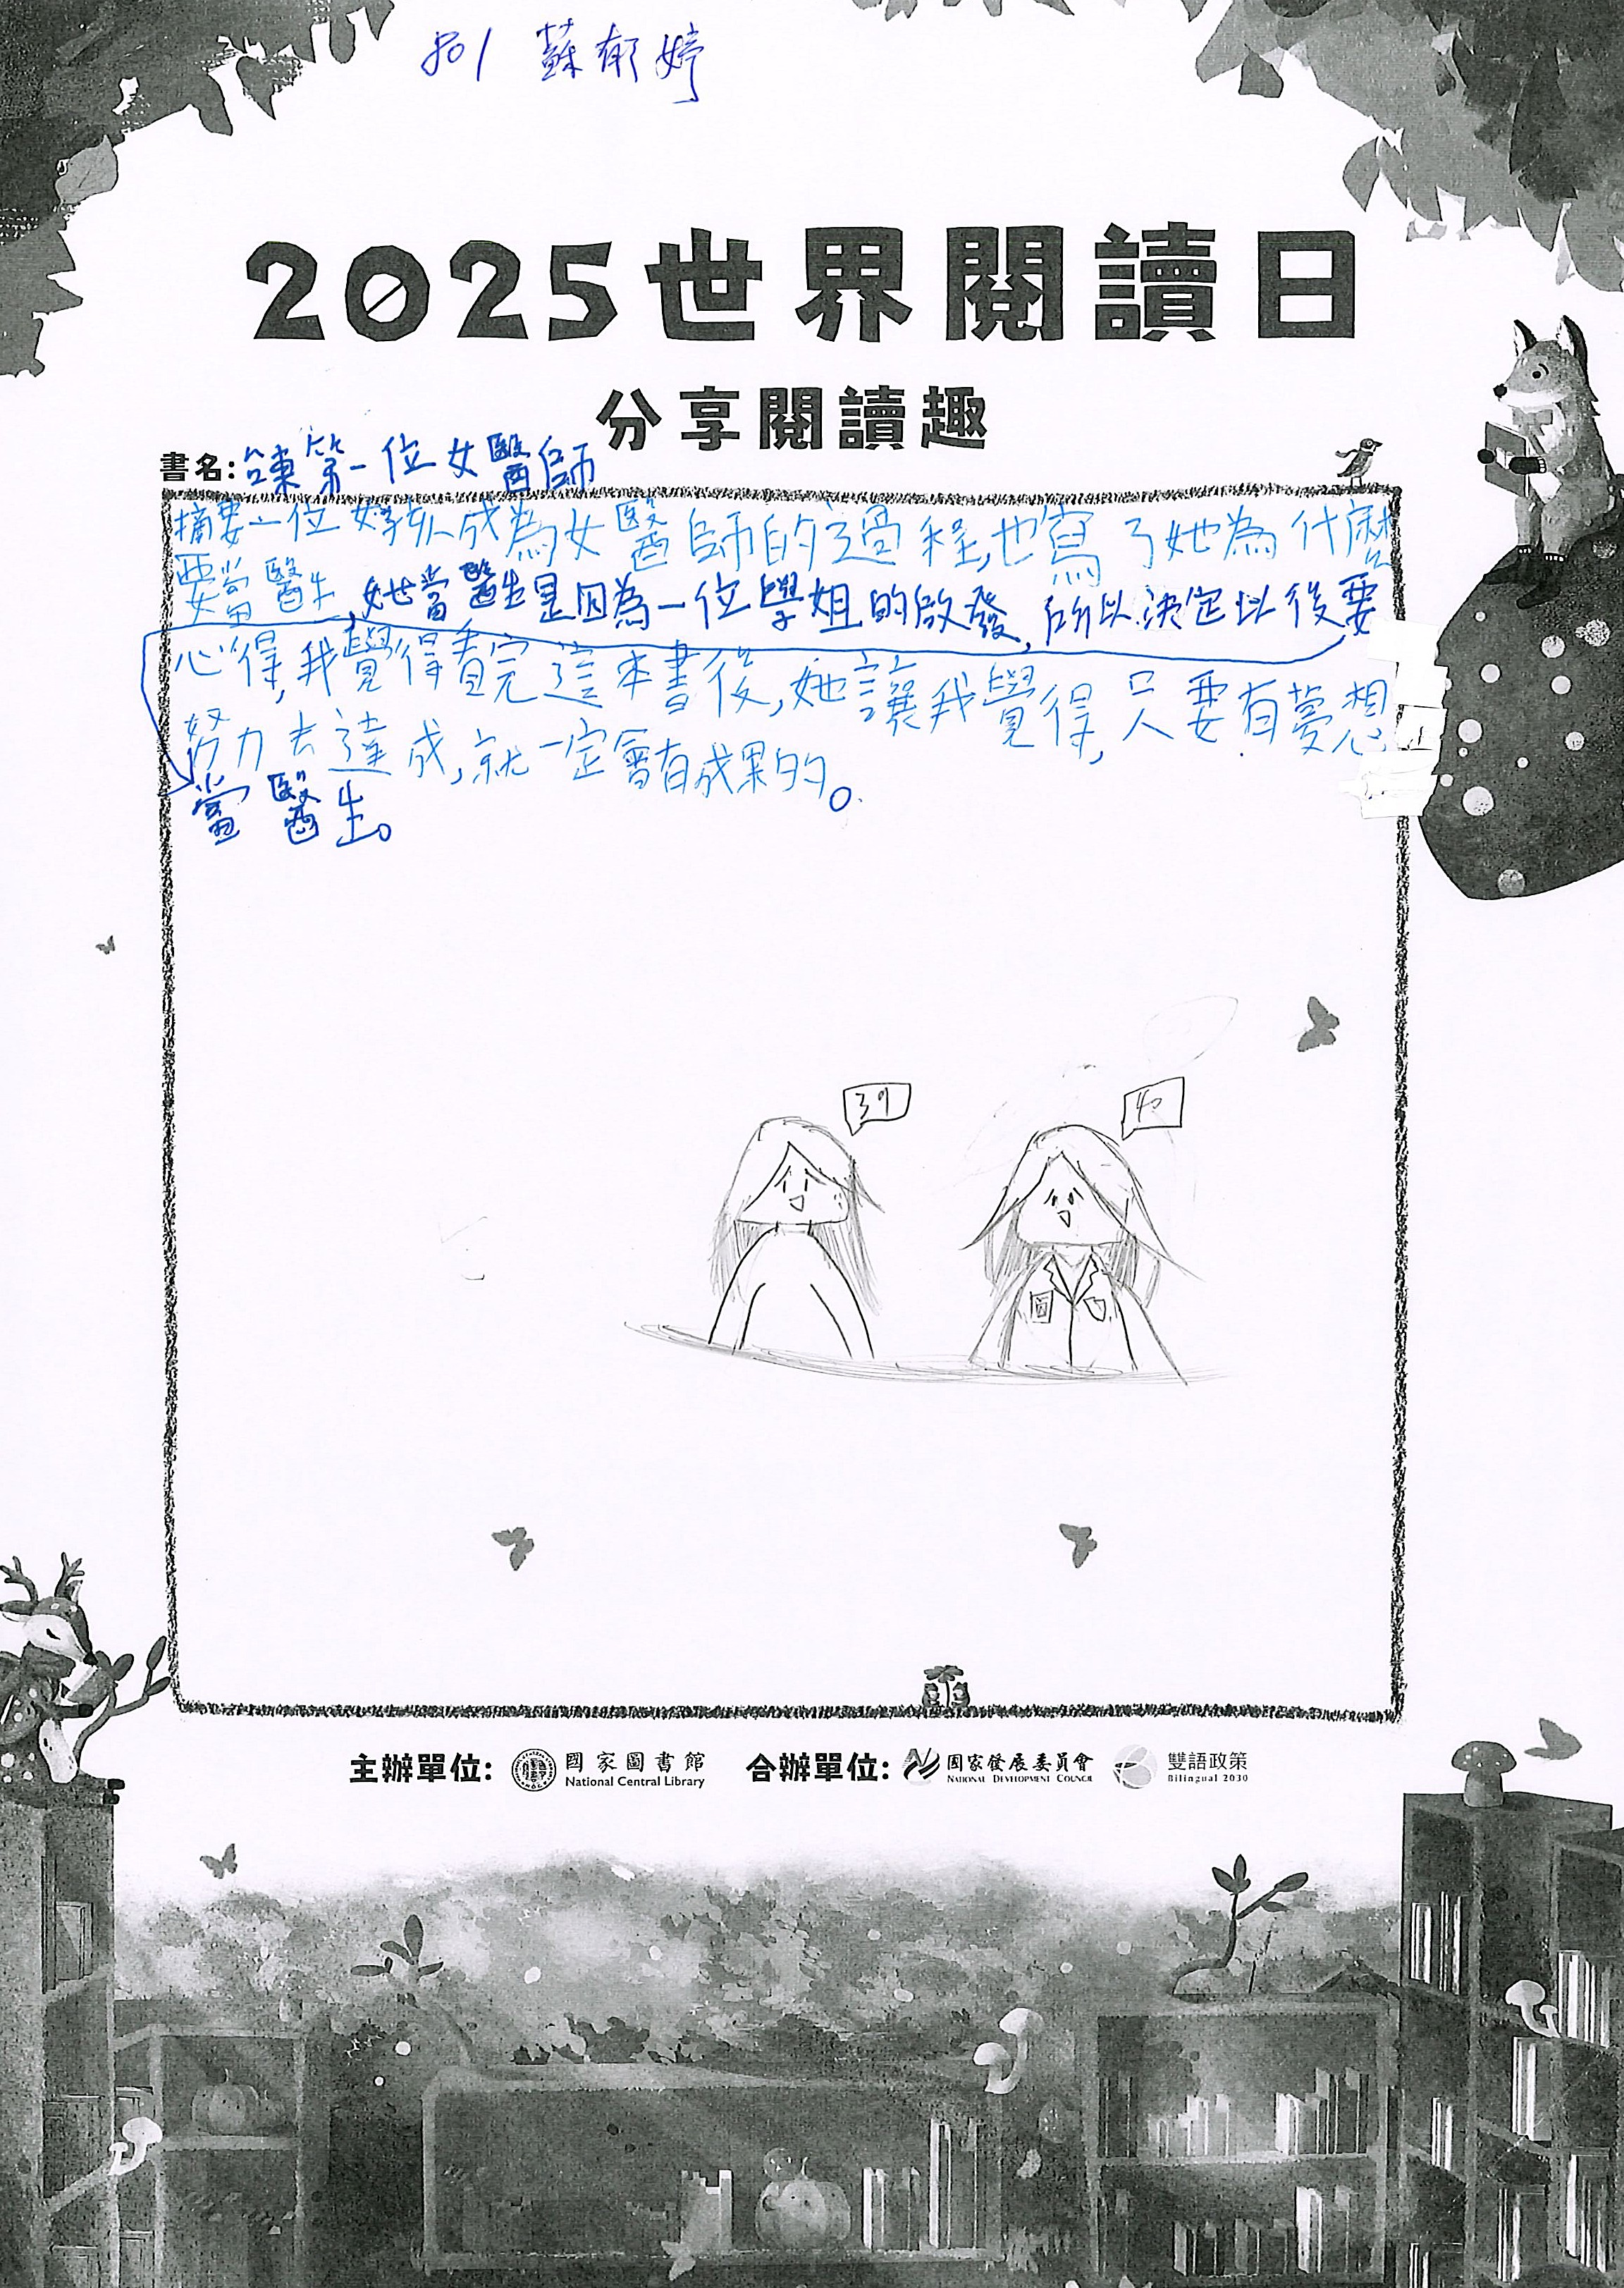 801 蘇郁婷
2025世界閱讀日
分享閱讀趣
書名:
第一位女醫師
摘要一位女孩成為女醫師的過程,也寫了她為什麼
要當醫生,她當醫生是因為一位學姐的啟發,所以決定以後要
心得,我覺得看完這本書後,她讓我覺得,只要有夢想
努力去達成,就一定會有成果的。
當醫生。
主辦單位: 國家圖書館 National Central Library 合辦單位: 國家發展委員會 NATIONAL DEVELOPMENT COUNCIL 雙語政策 Bilingual 2030